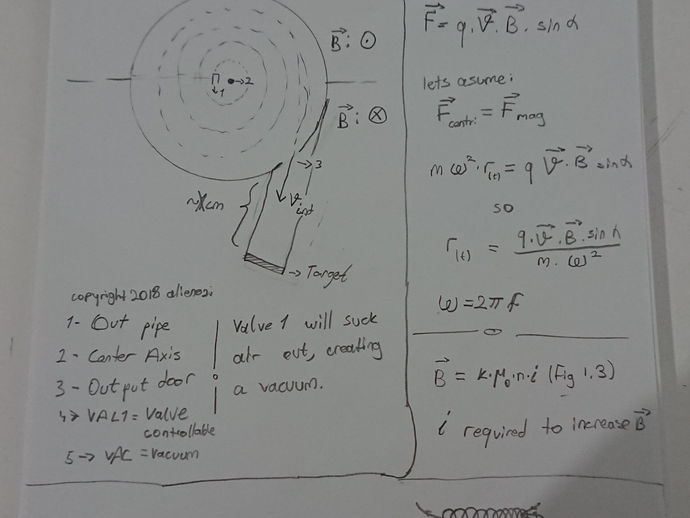 B : ⊙
Π
→2
1
B : ⊗
→3
~Xcm
→ Target
copyright 2018 alienezi
1- Out pipe
2- Center Axis
3- Output door
4→ VAL1 = Valve
controllable
5 → VAC = Vacuum
Valve 1 will suck
air out, creating
a vacuum.
F = q.V.B. sin α
lets asume:
Fcentri = Fmag
m ω². r(t) = q V. B sin α
so
r(t) = q.V.B. sin α / m. ω²
ω = 2πf
B = k.μ₀.n.i (Fig 1.3)
i required to increase B